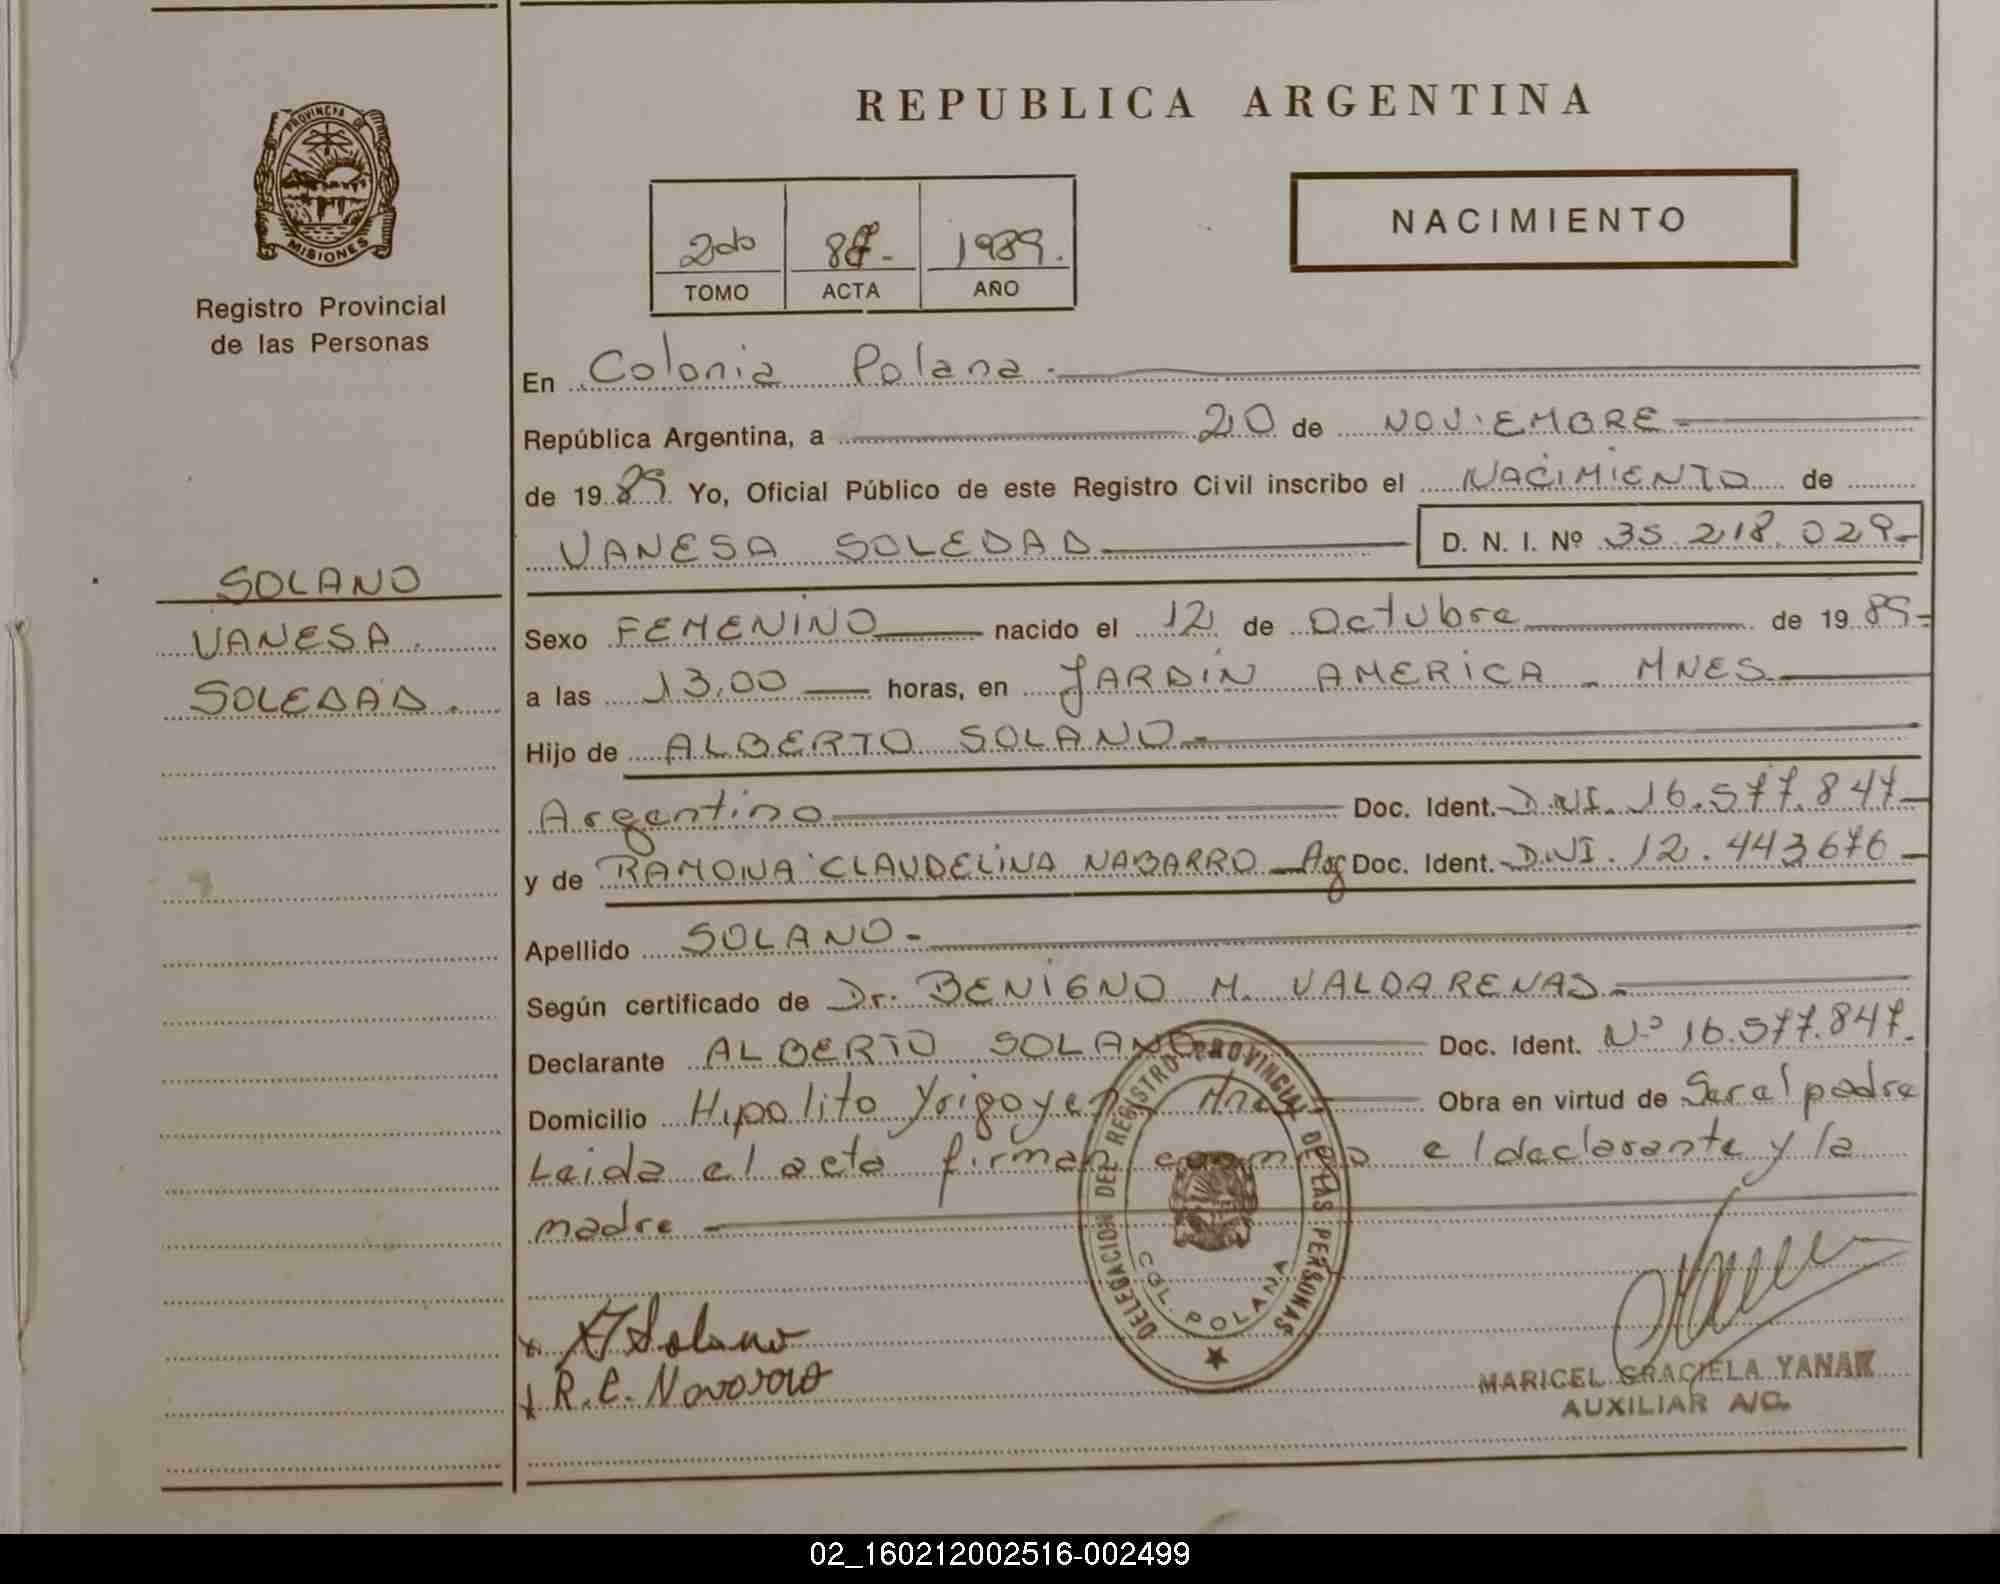 REPUBLICA ARGENTINA
PROVINCIA DE
MISIONES
Registro Provincial
de las Personas
NACIMIENTO
2do 1989.
TOMO ACTA AÑO
En Colonia Polana.
República Argentina, a 20 de NOVIEMBRE
de 1989. Yo, Oficial Público de este Registro Civil inscribo el NACIMIENTO de
VANESA SOLEDAD D. N. I. Nº 35.218.029-
SOLANO
VANESA.
SOLEDAD.
Sexo FEMENINO nacido el 12 de Octubre de 1989-
a las 13,00 horas, en JARDIN AMERICA - MNES
Hijo de ALBERTO SOLANO-
Argentino Doc. Ident. D.NI. 16.577.847
y de RAMONA CLAUDELINA NABARRO Arg Doc. Ident. D.NI. 12.443676
Apellido SOLANO-
Según certificado de Dr. BENIGNO M. VALDARENAS-
Declarante ALBERTO SOLANO Doc. Ident. Nº 16.577.847.
Domicilio Hipolito Yrigoyen Mnes Obra en virtud de Ser el padre
Leida el acta firman conmigo el declarante y la
madre -
DELEGACION DEL REGISTRO PROVINCIAL DE LAS PERSONAS
COL. POLANA
A Solano
R.C. Navarro
MARICEL GRACIELA YANAK
AUXILIAR A/C.
02_160212002516-002499